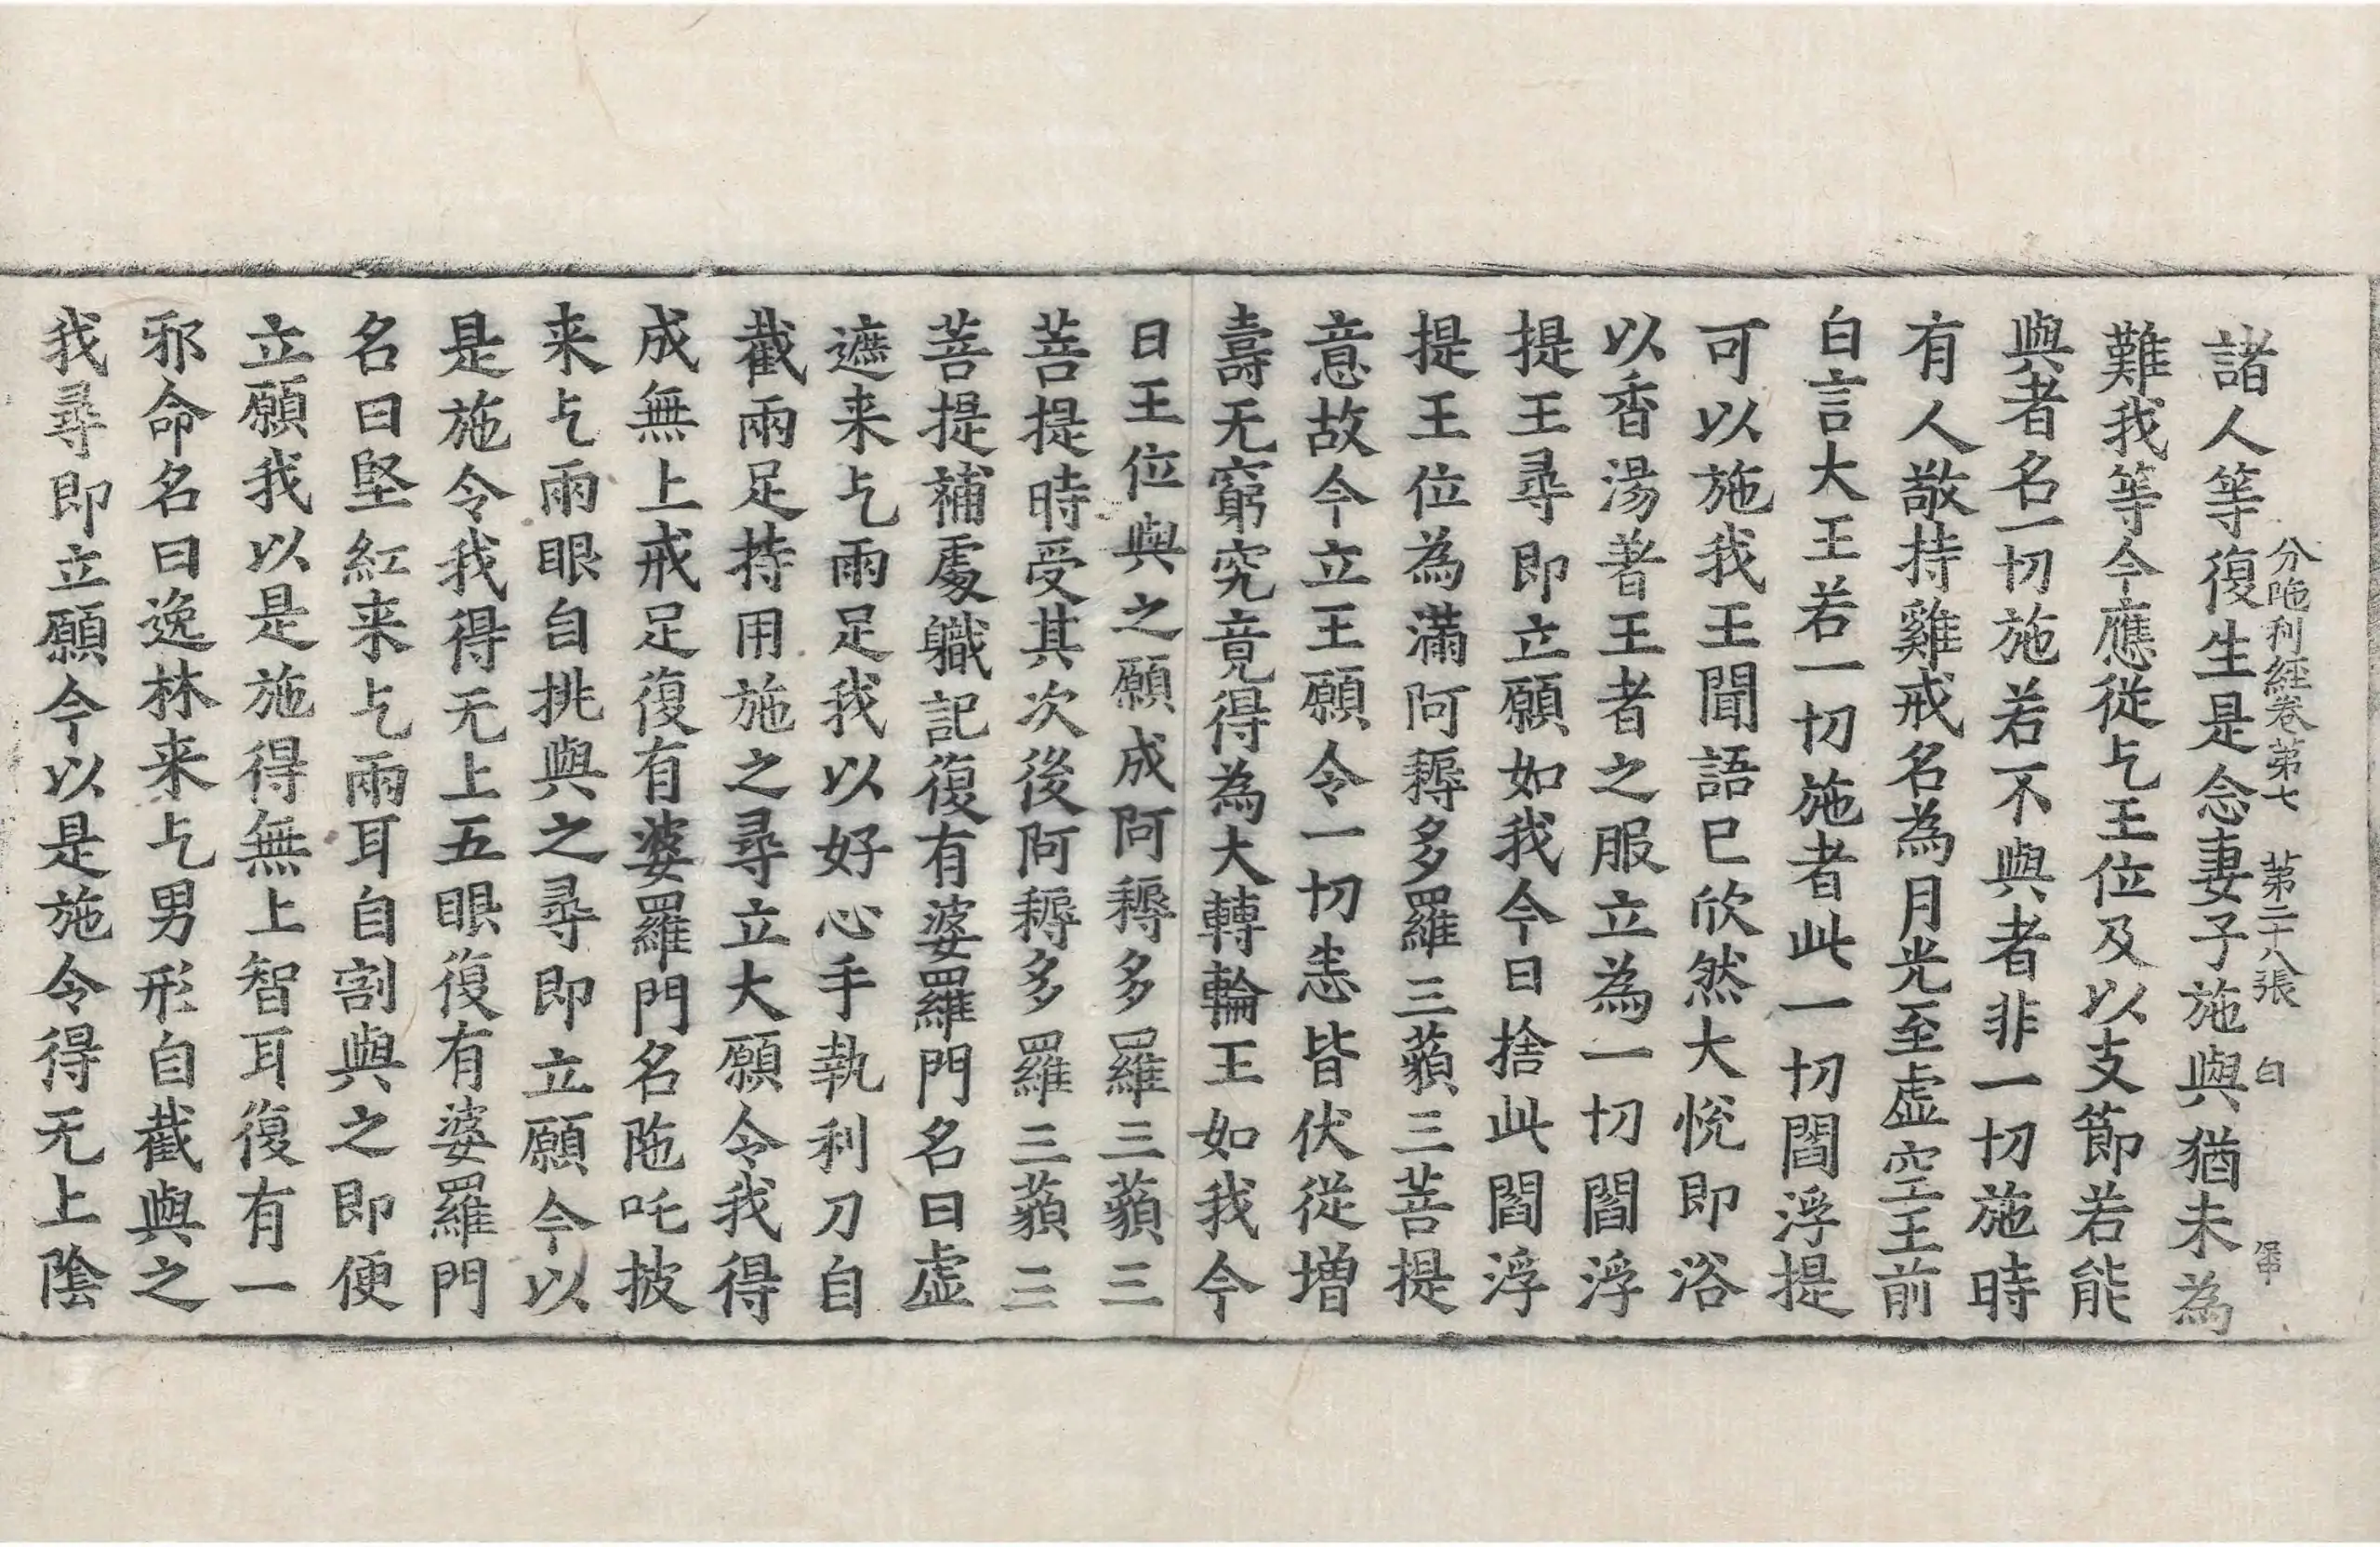 分陁利経卷第七 第二十八張 白
諸人等復生是念妻子施與猶未為
難我等今應從乞王位及以支節若能
與者名一切施若不與者非一切施時
有人敬持雞戒名為月光至虛空王前
白言大王若一切施者此一切閻浮提
可以施我王聞語已欣然大悅即浴
以香湯著王者之服立為一切閻浮
提王尋即立願如我今日捨此閻浮
提王位為滿阿耨多羅三藐三菩提
意故今立王願令一切恚皆伏從增
壽无窮究竟得為大轉輪王如我今
日王位與之願成阿耨多羅三藐三
菩提時受其次後阿耨多羅三藐三
菩提補處軄記復有婆羅門名曰虛
遮来乞兩足我以好心手執利刀自
截兩足持用施之尋立大願令我得
成無上戒足復有婆羅門名陁吒披
来乞兩眼自挑與之尋即立願今以
是施令我得无上五眼復有婆羅門
名曰堅紅来乞兩耳自割與之即便
立願我以是施得無上智耳復有一
邪命名曰逸林来乞男形自截與之
我尋即立願今以是施令得无上陰